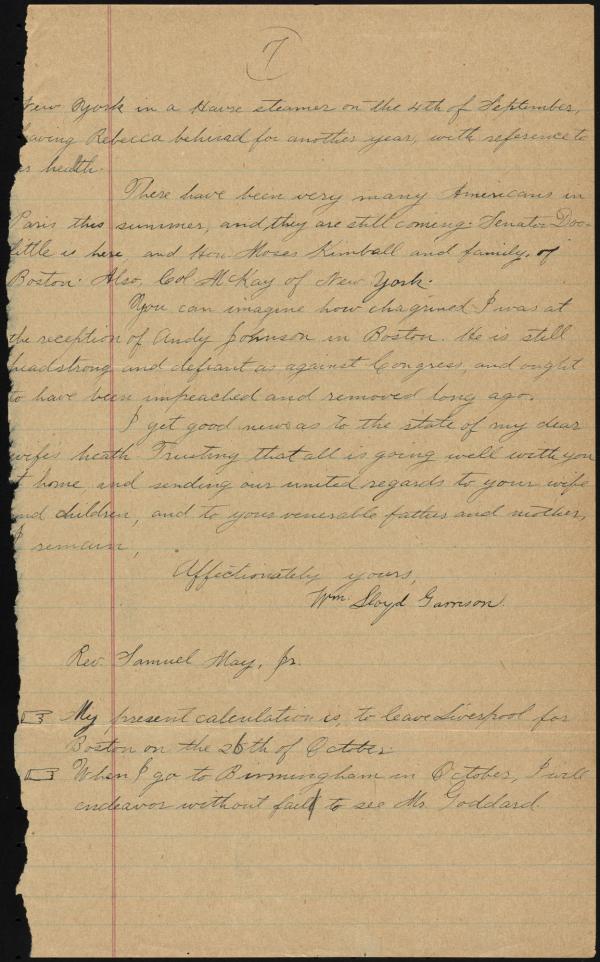 7
New York in a Havre steamer on the 4th of September,
eaving Rebecca behind for another year, with reference to
er health.
There have been very many Americans in
Paris this summer, and they are still coming. Senator Doo-
little is here, and Hon. Moses Kimball and family, of
Boston. Also, Col McKay of New York.
You can imagine how chagrined I was at
the reception of Andy Johnson in Boston. He is still
headstrong and defiant as against Congress, and ought
to have been impeached and removed long ago.
I get good news as to the state of my dear
wife's heath. Trusting that all is going well with you
t home, and sending our united regards to your wife
and children, and to your venerable father and mother,
I remain,
Affectionately yours,
Wm. Lloyd Garrison.
Rev. Samuel May, Jr.
My present calculation is, to leave Liverpool for
Boston on the 26th of October.
When I go to Birmingham in October, I will
endeavor without fail to see Mr. Goddard.